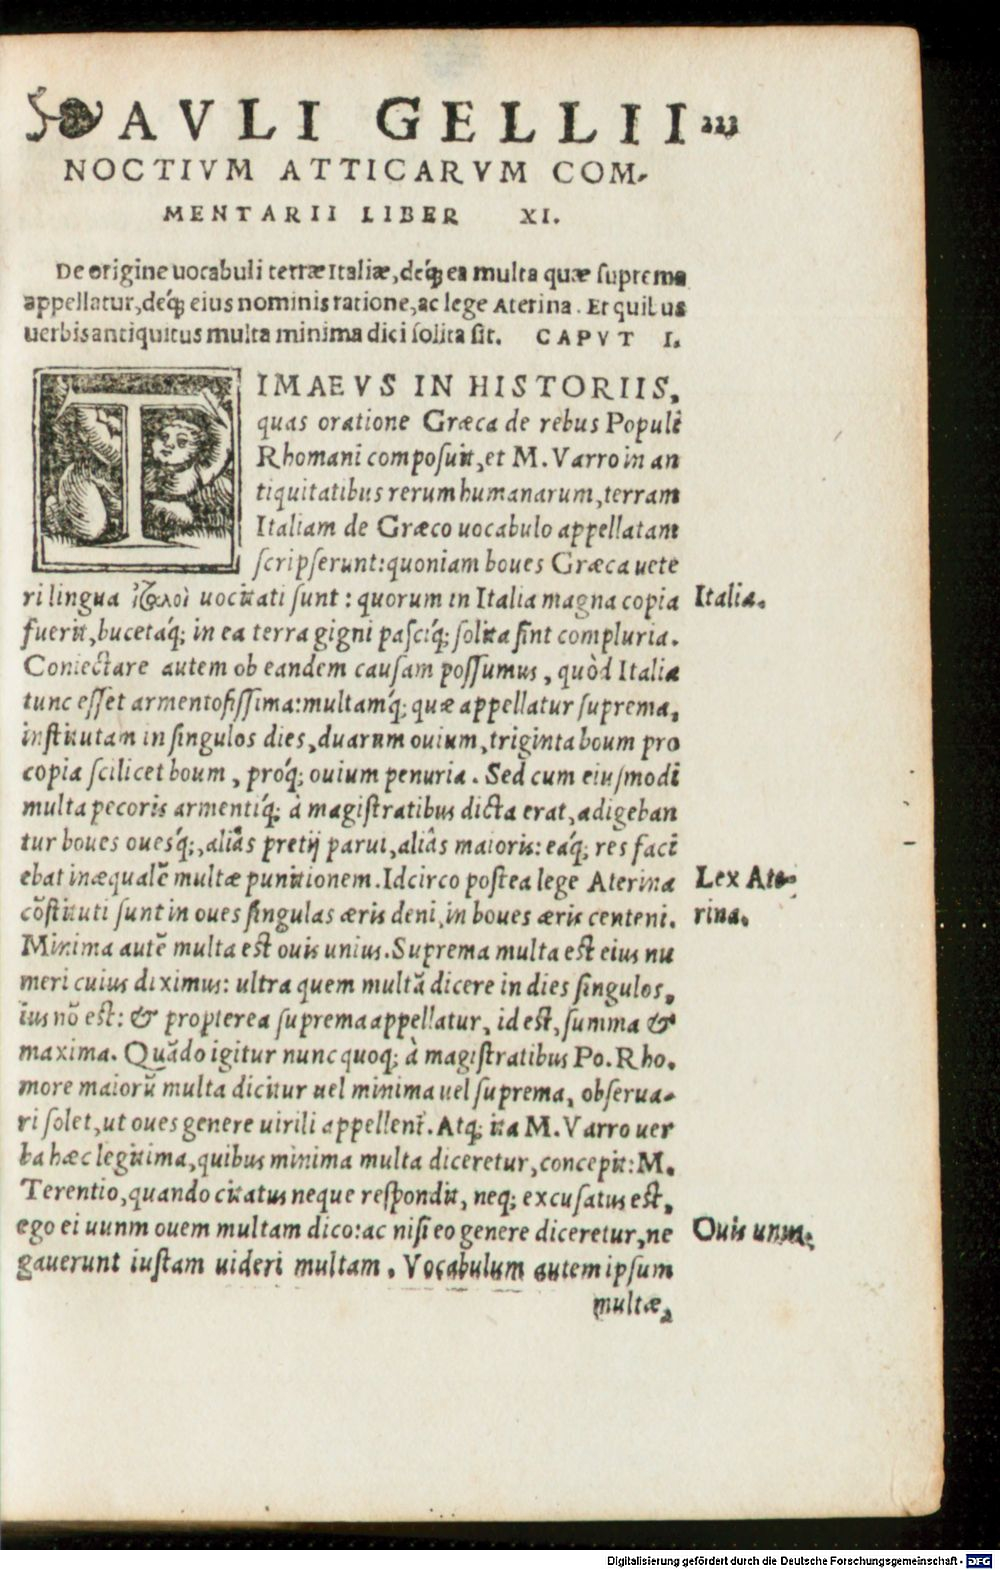 AVLI GELLII
NOCTIVM ATTICARVM COM-
MENTARII LIBER XI.
De origine uocabuli terræ Italiæ, deq́; ea multa quæ suprema
appellatur, deq́; eius nominis ratione, ac lege Aterina. Et quibus
uerbis antiquitus multa minima dici solita sit. CAPVT I.
TIMAEVS IN HISTORIIS,
quas oratione Græca de rebus Populi
Rhomani composuit, et M. Varro in an
tiquitatibus rerum humanarum, terram
Italiam de Græco uocabulo appellatam
scripserunt: quoniam boues Græca uete
ri lingua ἰταλοὶ uocitati sunt: quorum in Italia magna copia
Italia.
fuerit, bucetaq́; in ea terra gigni pasciq́; solita sint compluria.
Coniectare autem ob eandem causam possumus, quòd Italia
tunc esset armentosissima: multamq́; quæ appellatur suprema,
institutam in singulos dies, duarum ouium, triginta boum pro
copia scilicet boum, proq́; ouium penuria. Sed cum eiusmodi
multa pecoris armentiq́; à magistratibus dicta erat, adigeban
tur boues ouesq́;, aliâs pretij parui, aliâs maioris: eaq́; res faci
ebat inæqualẽ multæ punitionem. Idcirco postea lege Aterina
Lex Ate-
cõstituti sunt in oues singulas æris deni, in boues æris centeni.
rina.
Minima autẽ multa est ouis unius. Suprema multa est eius nu
meri cuius diximus: ultra quem multã dicere in dies singulos,
ius nõ est: & propterea suprema appellatur, id est, summa &
maxima. Quãdo igitur nunc quoq; à magistratibus Po. Rho.
more maiorũ multa dicitur uel minima uel suprema, obserua-
ri solet, ut oues genere uirili appellent̃. Atq; ita M. Varro uer
ba hæc legitima, quibus minima multa diceretur, concepit: M.
Terentio, quando citatus neque respondit, neq; excusatus est,
ego ei uunm ouem multam dico: ac nisi eo genere diceretur, ne
Ouis unus.
gauerunt iustam uideri multam. Vocabulum autem ipsum
multæ,
Digitalisierung gefördert durch die Deutsche Forschungsgemeinschaft - DFG